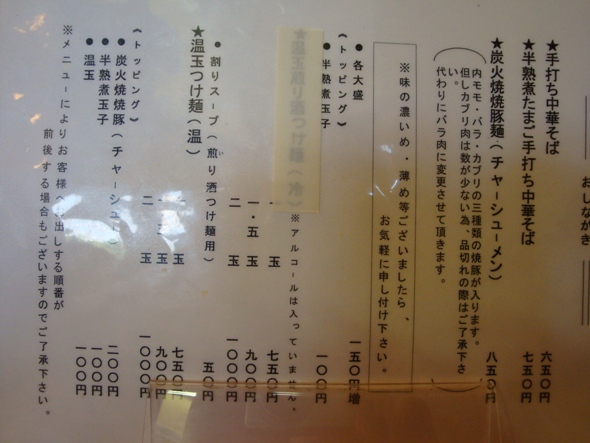 おしながき
★手打ち中華そば 六五〇円
★半熟煮たまご手打ち中華そば 七五〇円
★炭火焼焼豚麺(チャーシューメン) 八五〇円
内モモ・バラ・カブリの三種類の焼豚が入ります。
但しカブリ肉は数が少ない為、品切れの際はご了承下さい。
代わりにバラ肉に変更させて頂きます。
※味の濃いめ・薄め等ございましたら、
お気軽に申し付け下さい。
●各大盛 一五〇円増
《トッピング》
●半熟煮玉子 一〇〇円
★温玉煎り酒つけ麺(冷) ※アルコールは入っていません。
一 玉 七五〇円
一・五 玉 九〇〇円
二 玉 一〇〇〇円
●割りスープ(煎い り酒つけ麺用) 五〇円
★温玉つけ麺(温)
一 玉 七五〇円
一・五 玉 九〇〇円
二 玉 一〇〇〇円
《トッピング》
●炭火焼焼豚(チャーシュー) 二〇〇円
●半熟煮玉子 一〇〇円
●温玉 一〇〇円
※メニューによりお客様へお出しする順番が
前後する場合もございますのでご了承下さい。